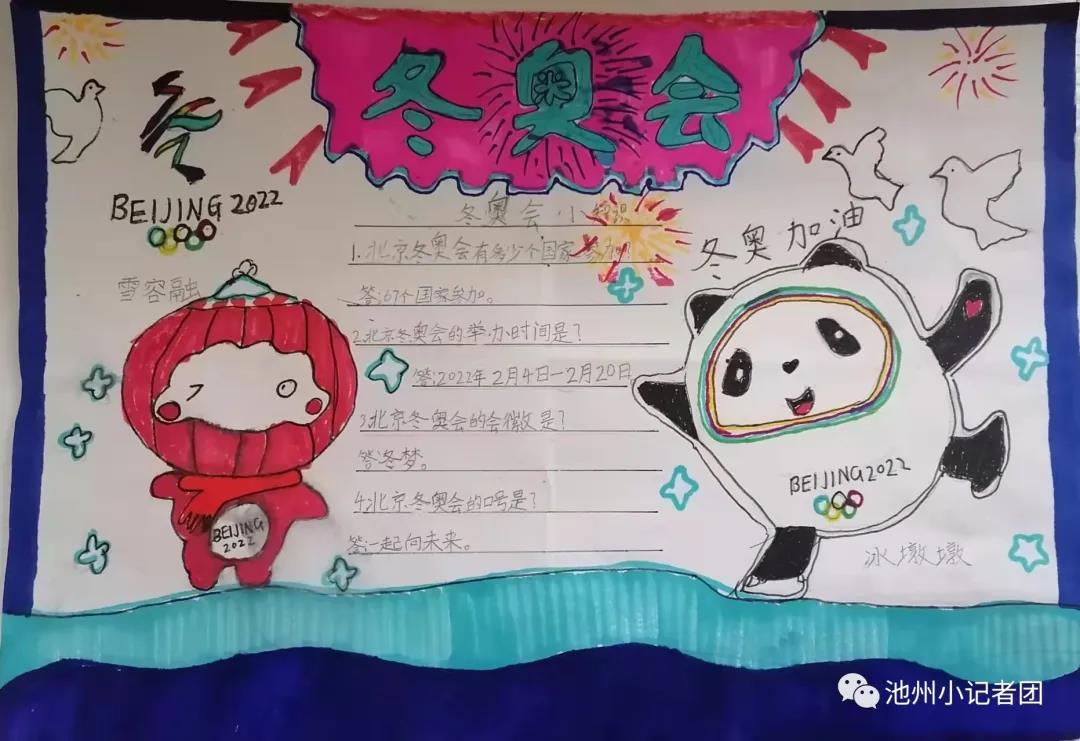 冬奥会
BEIJING 2022
冬奥会小知识
1.北京冬奥会有多少个国家参加?
答:67个国家参加。
2.北京冬奥会的举办时间是?
答:2022年2月4日—2月20日
3.北京冬奥会的会徽是?
答:冬梦。
4.北京冬奥会的口号是?
答:一起向未来。
雪容融
BEIJING
2022
冬奥加油
BEIJING2022
冰墩墩
池州小记者团